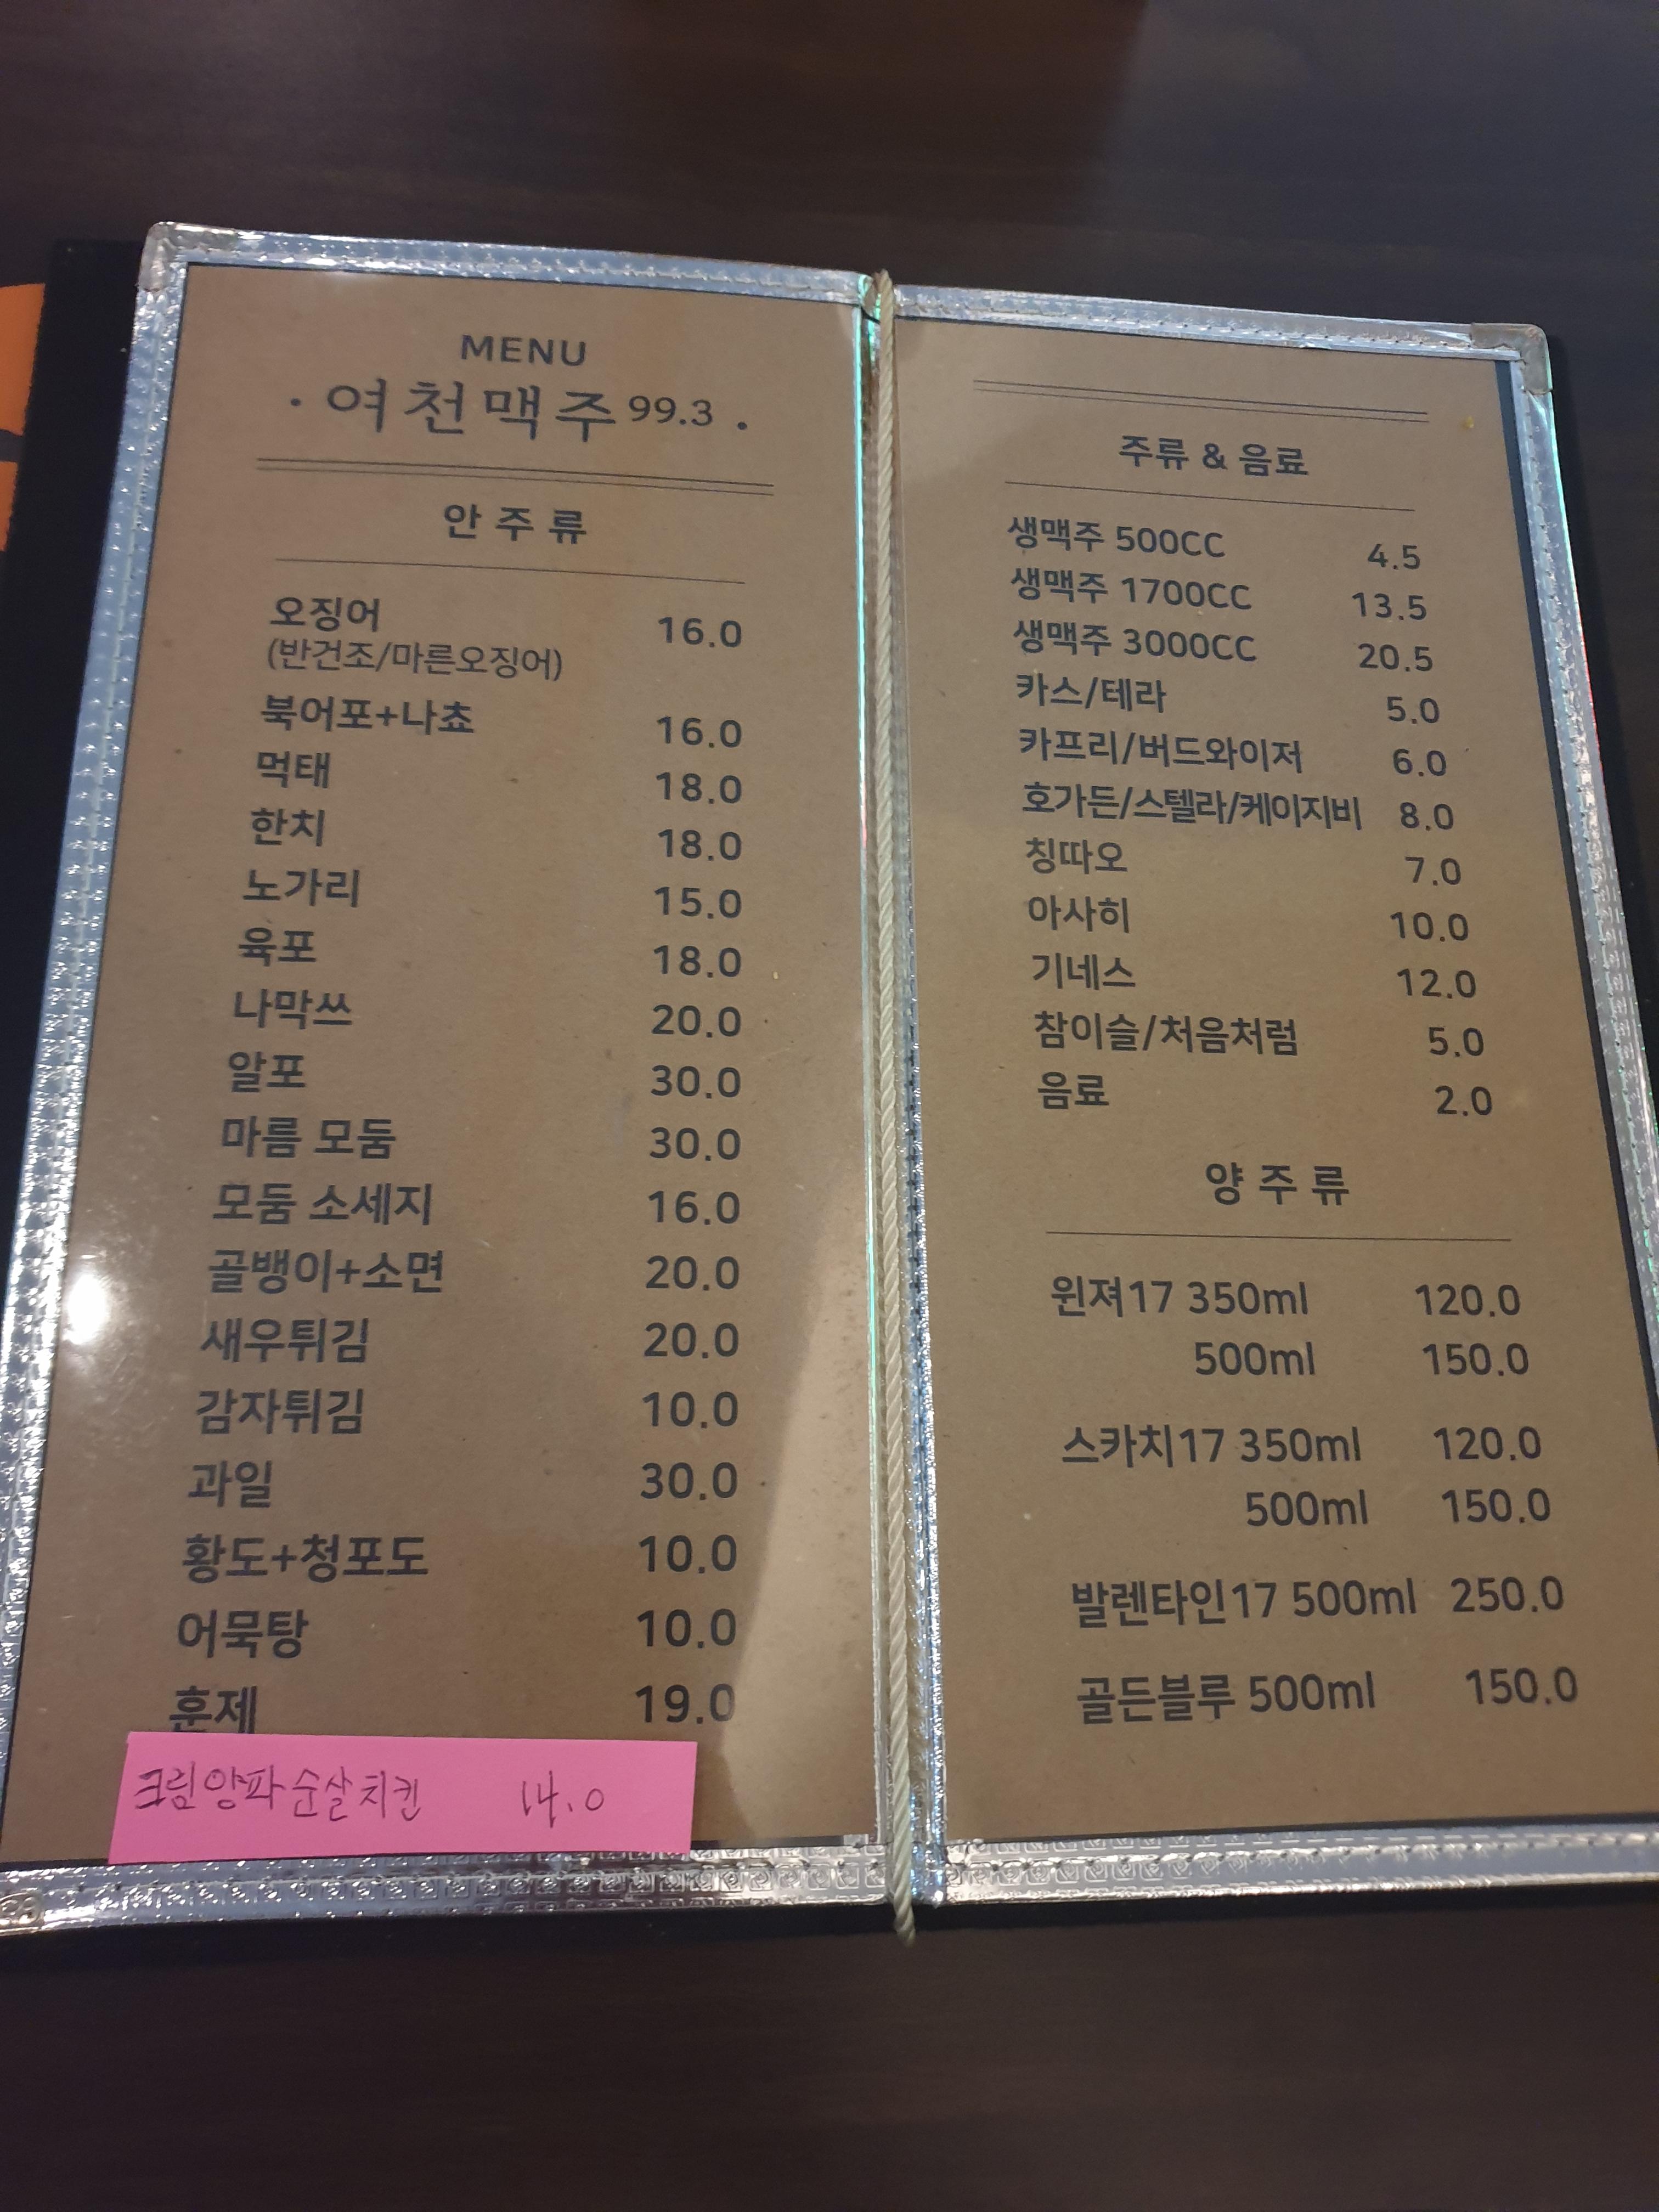 MENU
· 여천맥주 99.3 .
안 주 류
오징어 16.0
(반건조/마른오징어)
북어포+나쵸 16.0
먹태 18.0
한치 18.0
노가리 15.0
육포 18.0
나막쓰 20.0
알포 30.0
마름 모둠 30.0
모둠 소세지 16.0
골뱅이+소면 20.0
새우튀김 20.0
감자튀김 10.0
과일 30.0
황도+청포도 10.0
어묵탕 10.0
훈제 19.0
크림양파순살치킨 14.0
주류 & 음료
생맥주 500CC 4.5
생맥주 1700CC 13.5
생맥주 3000CC 20.5
카스/테라 5.0
카프리/버드와이저 6.0
호가든/스텔라/케이지비 8.0
칭따오 7.0
아사히 10.0
기네스 12.0
참이슬/처음처럼 5.0
음료 2.0
양 주 류
윈져17 350ml 120.0
500ml 150.0
스카치17 350ml 120.0
500ml 150.0
발렌타인17 500ml 250.0
골든블루 500ml 150.0